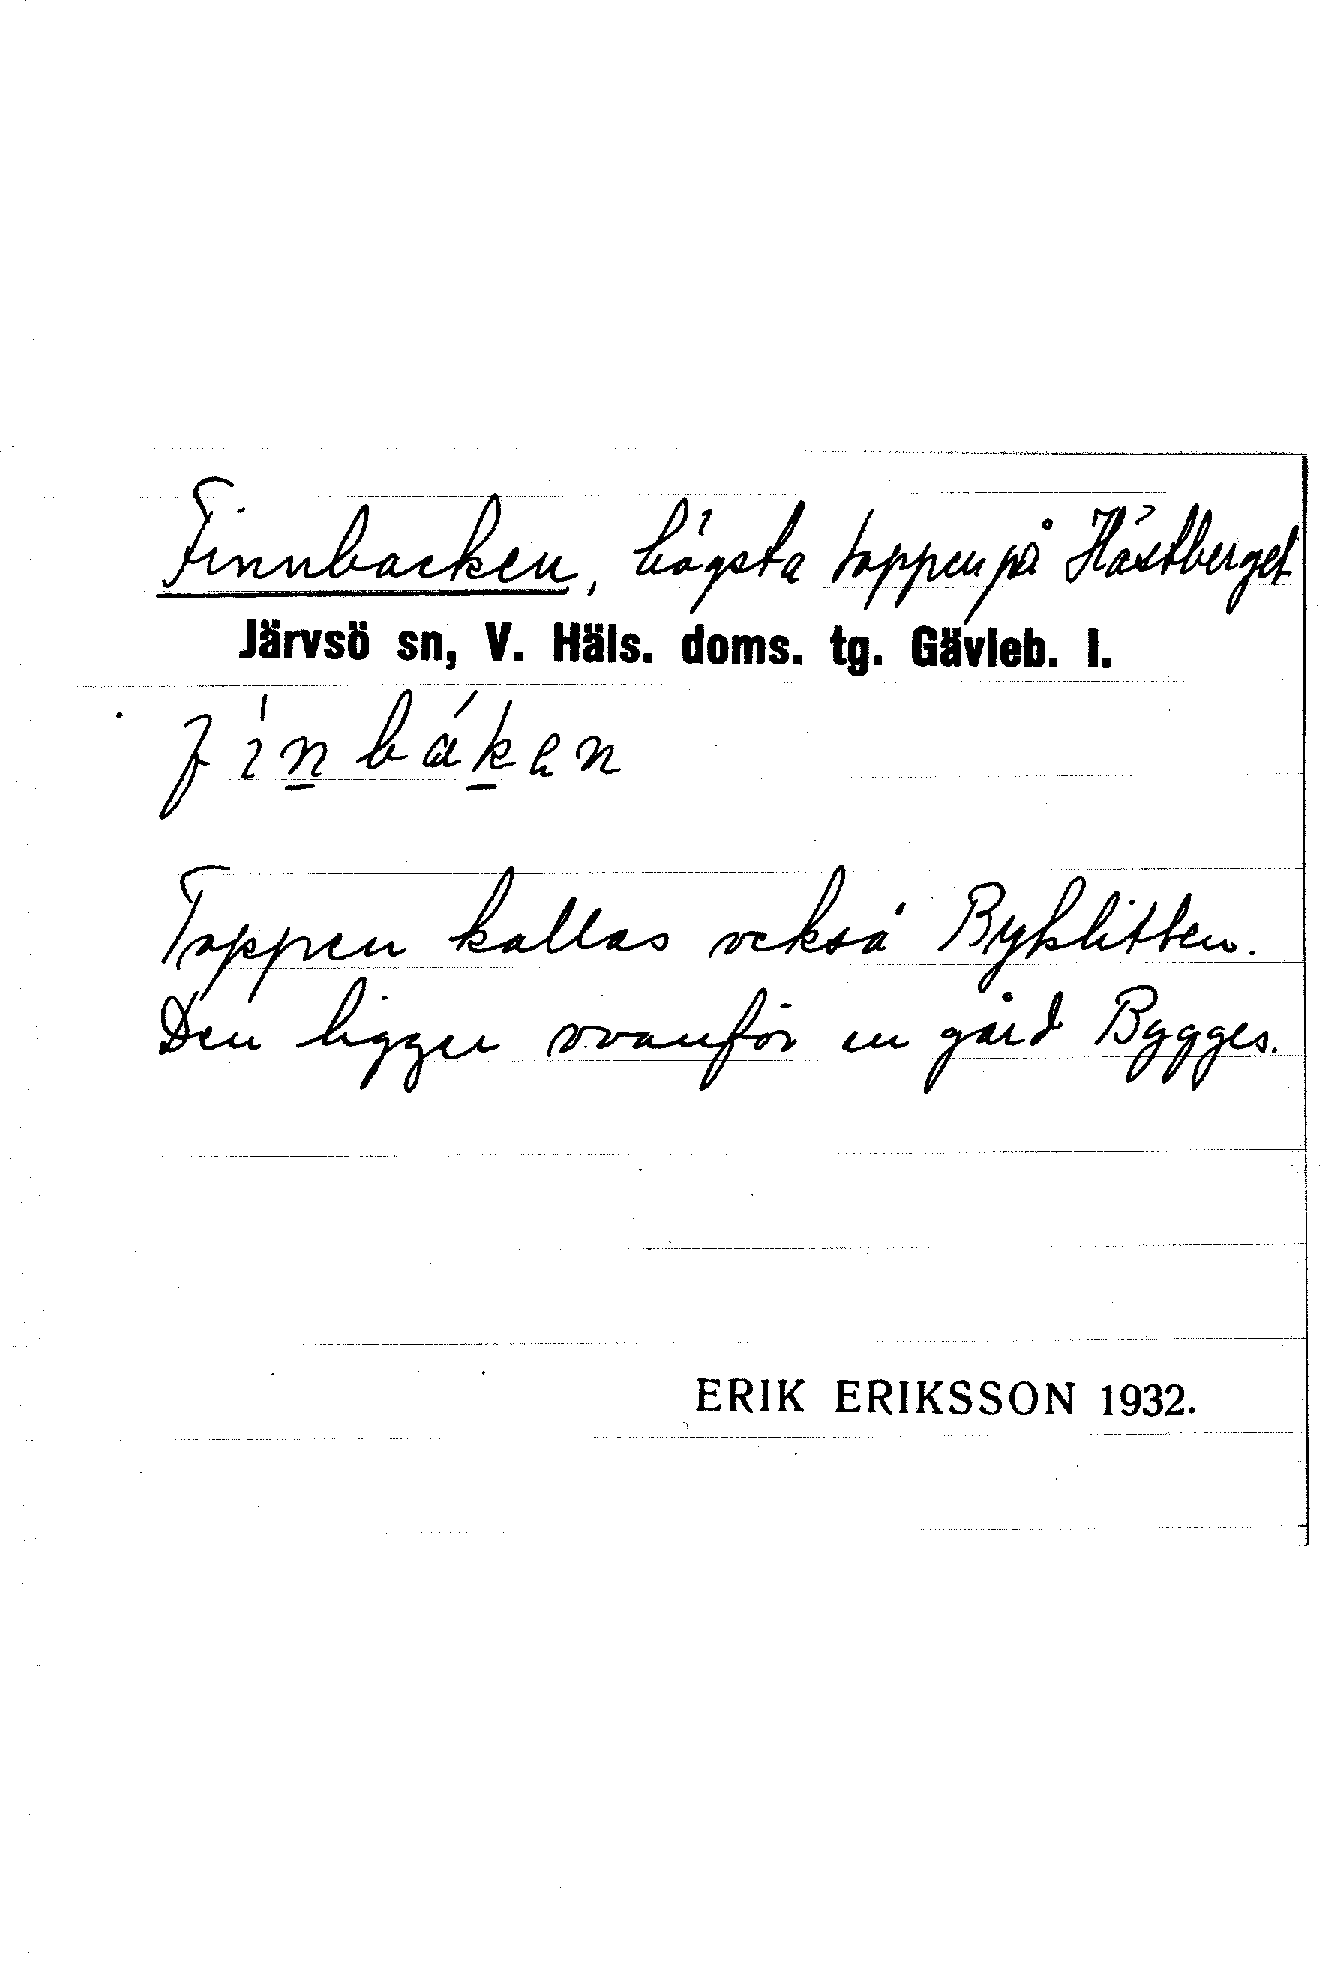 Finnbacken, högsta toppen på Hästberget
Järvsö sn, V. Häls. doms. tg. Gävleb. l.
fínbáken
Toppen kallas också Byklitten.
Den ligger ovanför en gård Bygges.
ERIK ERIKSSON 1932.